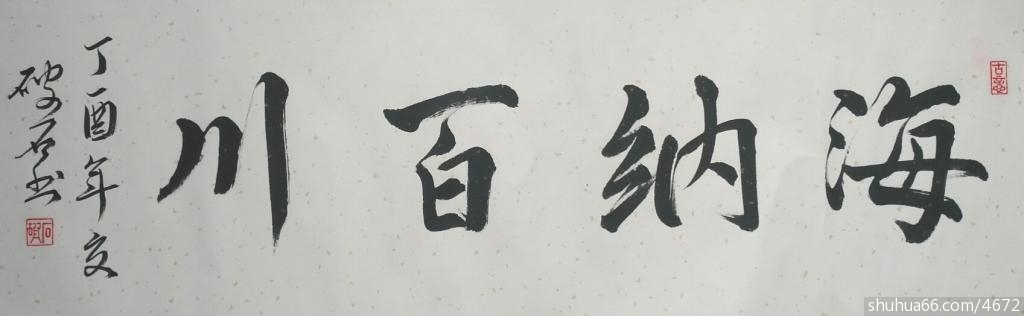 海纳百川
丁酉年文
破石书
shuhua66.com/4672